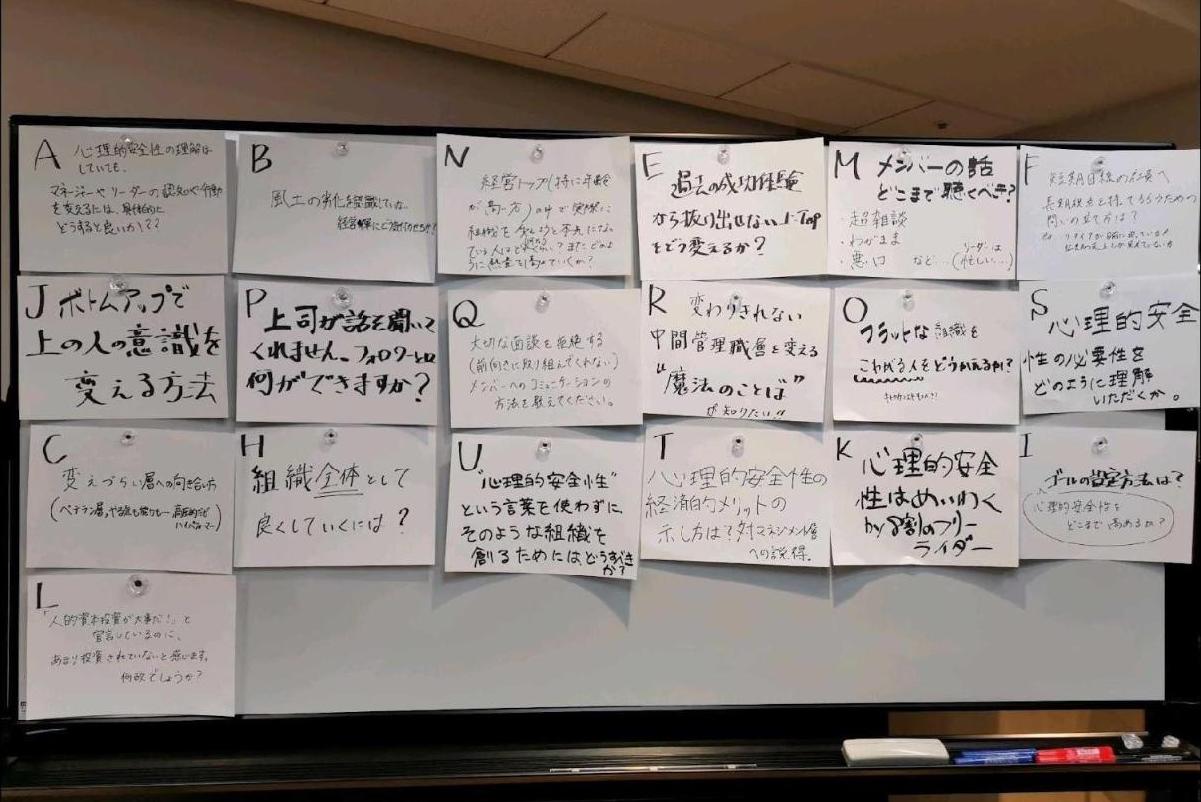 A 心理的安全性の理解は
していても、
マネージャやリーダーの認知や行動
を変えるには、具体的に
どうすると良いか???
B
風土の劣化組織していな
経営陣に
N
経営トップ(特に年齢
が高い方)の中で実際に
組織を
ている人はどの
うに熱量を高めていくか?
E 過去の成功体験
から抜け出せないJ-Top
をどう変えるか?
M メンバーの話
どこまで聴くべき?
・超雑談
・わがまま
・悪口 など…(リーダーは忙しい…)
F
短期目線の社長へ
長期視点を持てもらうための
問いの立て方は?
J ボトムアップで
上の人の意識を
変える方法
P 上司が話を聞いて
くれません。フォロワーとして
何ができますか?
Q
大切な面談を拒絶する
(前向きに取り組んでくれない)
メンバーへのコミュニケーションの
方法を教えてください。
R 変わりきれない
中間管理職層を変える
"魔法のことば"
が知りたい!!
O
フラットな組織を
こわがる人をどうかえるか?
S
心理的安全
性の必要性を
どのように理解
いただくか。
C
変えづらい層への向き合い方
(ベテラン層、
H
組織全体として
良くしていくには?
U "心理的安全性"
という言葉を使わずに
そのような組織を
創るためにはどうすべき
か?
T
心理的安全性の
経済的メリットの
示し方は?対マネジメント層
への説得.
K 心理的安全
性はめいわく
かも?8割のフリー
ライダー
I
ゴールの設定方法は?
心理的安全性を
どこまで高めるか?
L
「人的資本投資が大事だ!」と
宣言しているのに、
あまり投資されていないと感じます。
何故でしょうか?